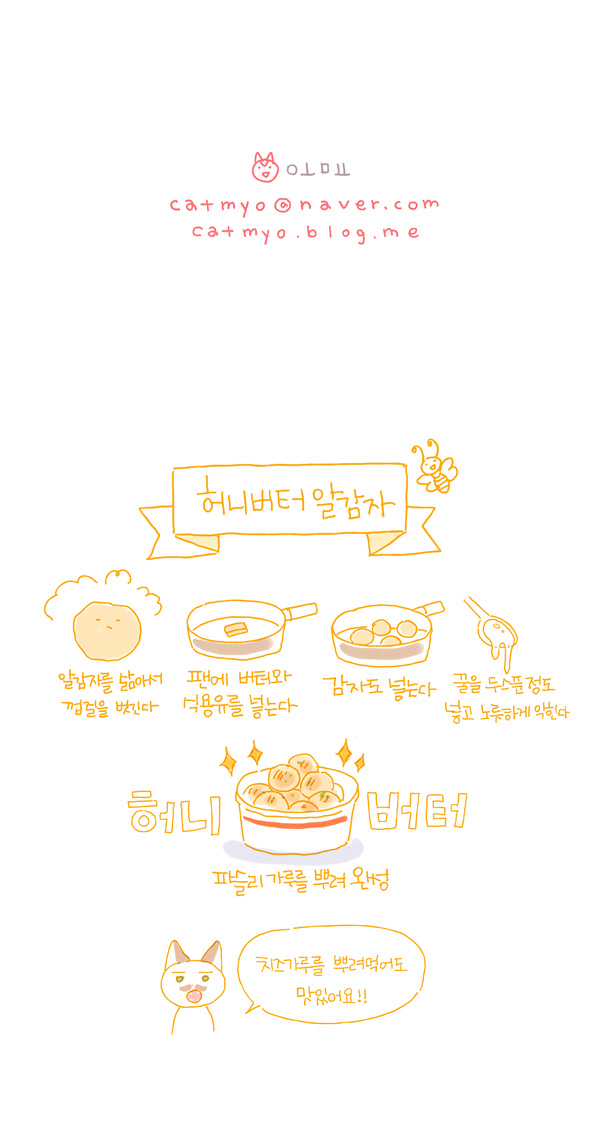 ㅇㅗㅁㅛ
catmyo@naver.com
catmyo.blog.me
허니버터 알감자
알감자를 삶아서
껍질을 벗긴다
팬에 버터와
식용유를 넣는다
감자도 넣는다
꿀을 두스푼 정도
넣고 노릇하게 익힌다
허니 버터
파슬리 가루를 뿌려 완성
치즈가루를 뿌려먹어도
맛있어요!!